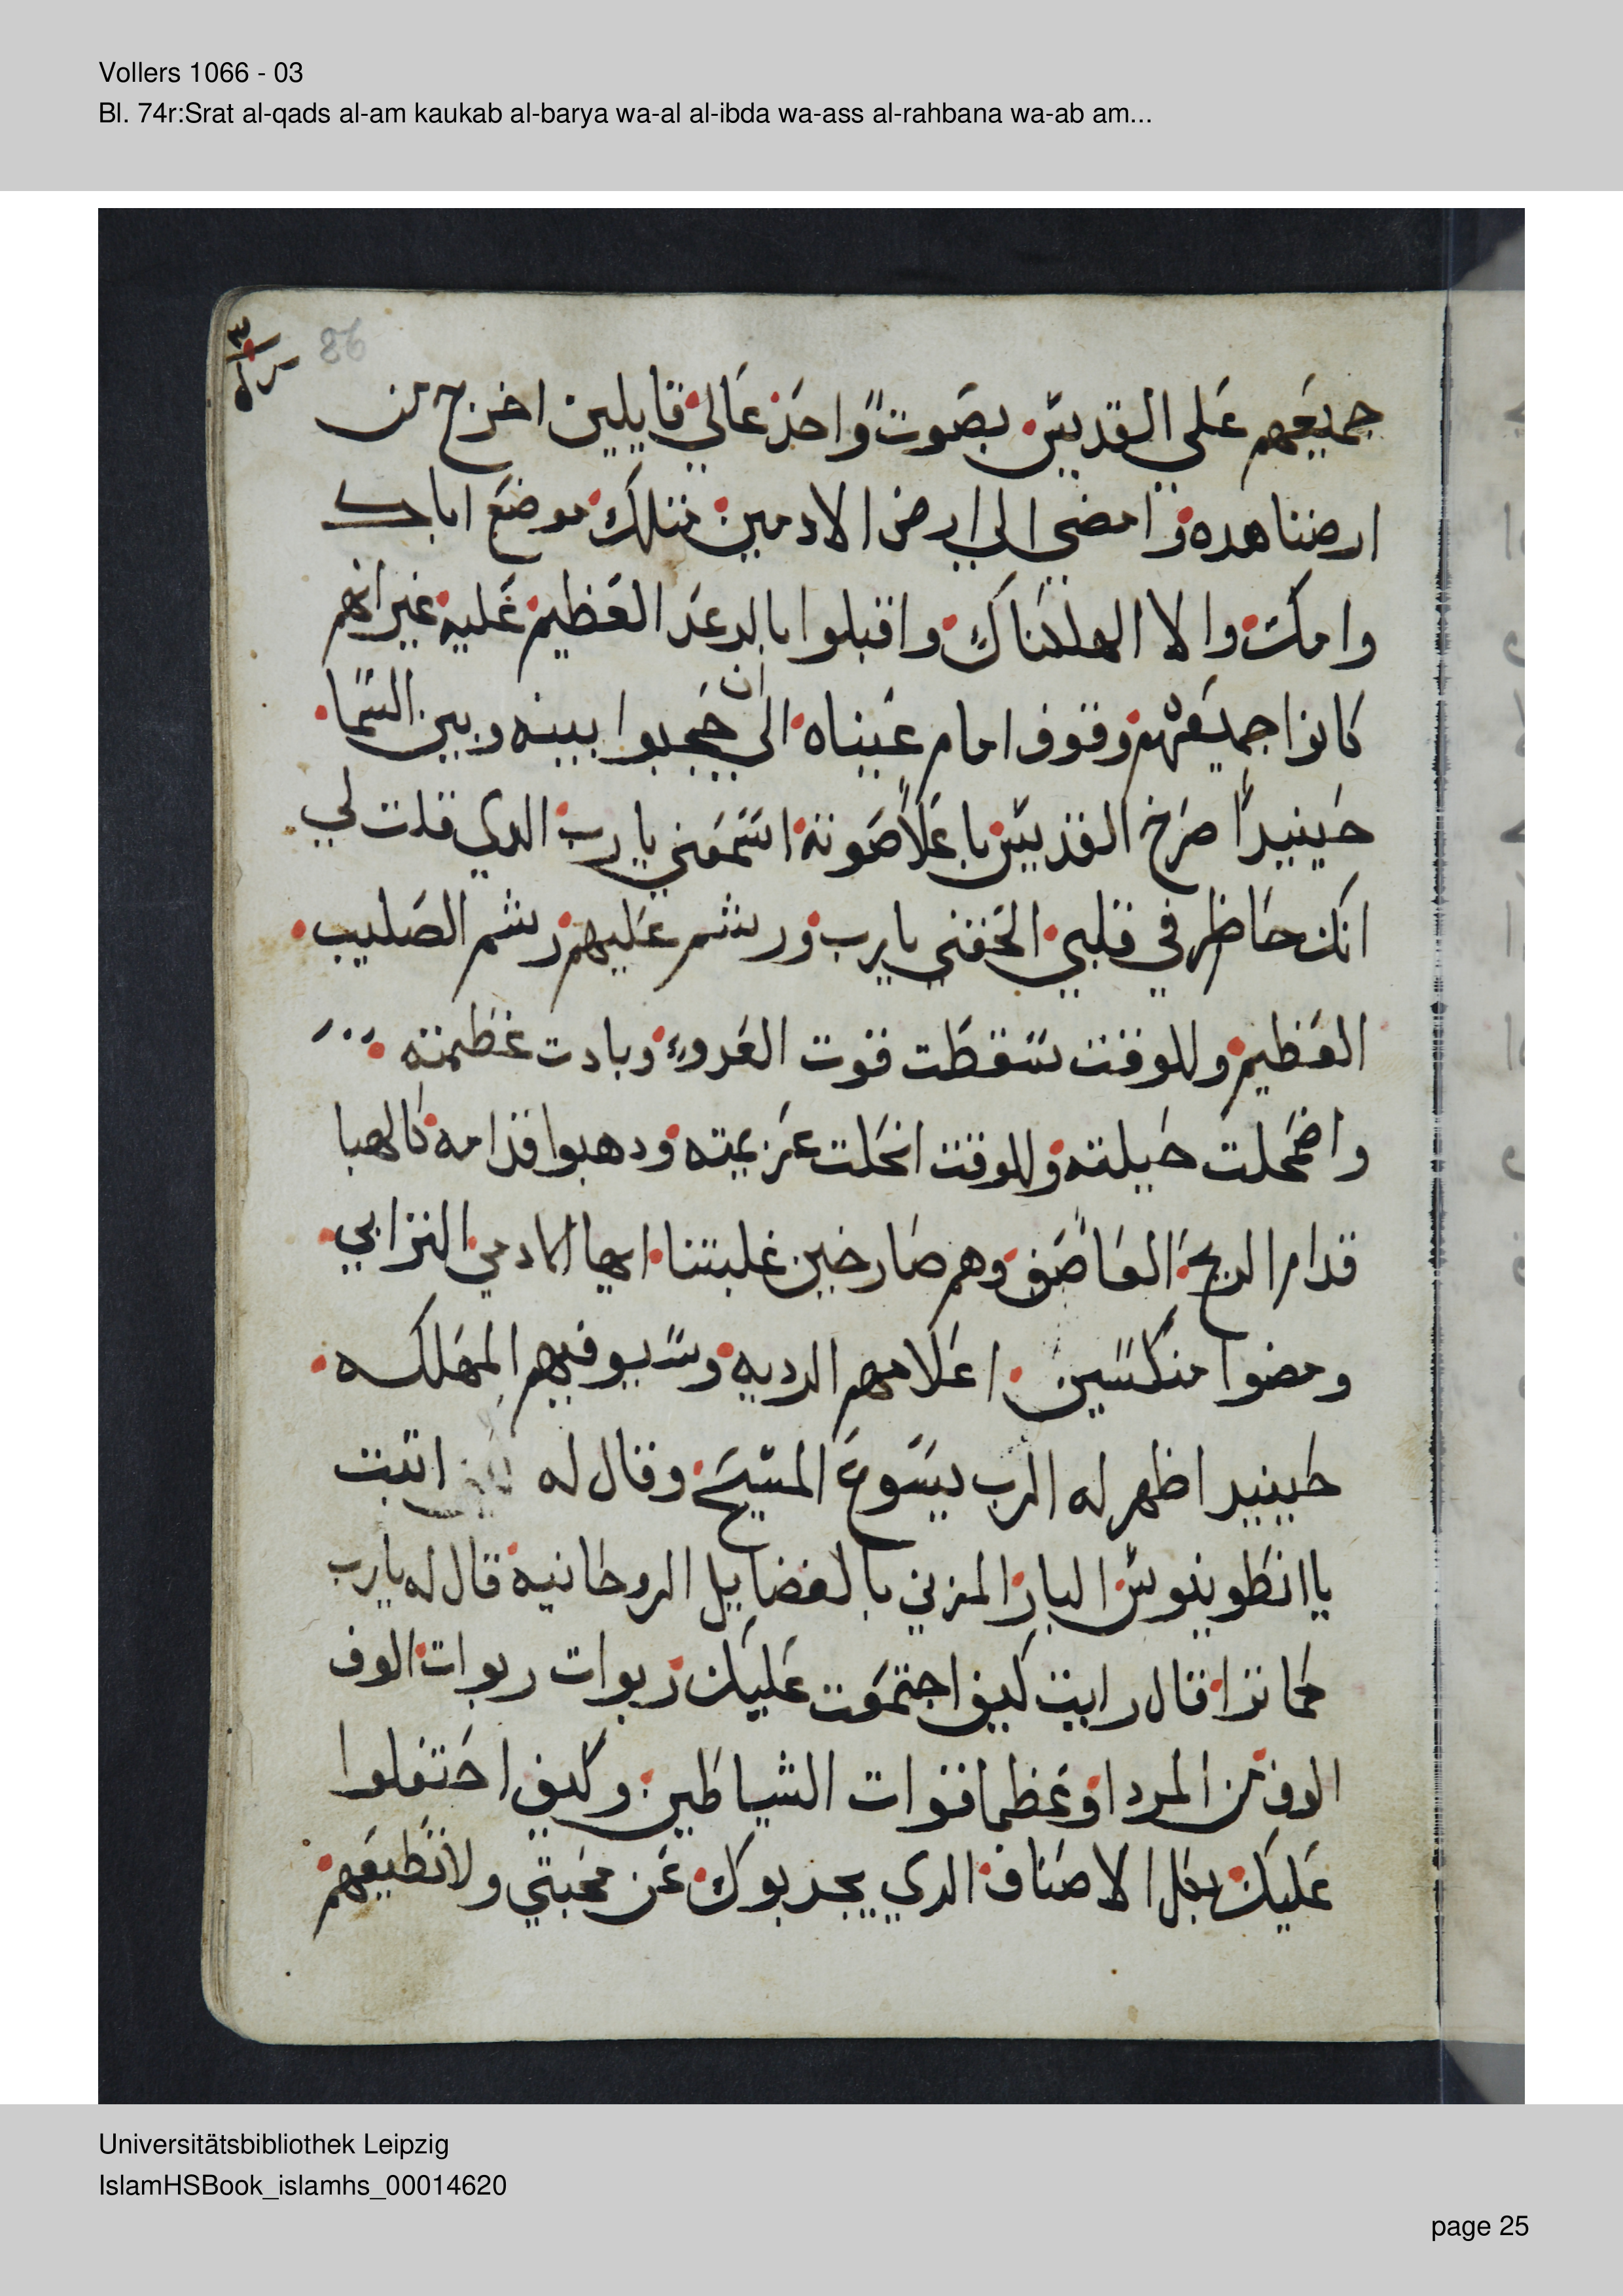 Vollers 1066 - 03
Bl. 74r:Srat al-qads al-am kaukab al-barya wa-al al-ibda wa-ass al-rahbana wa-ab am...
86
جميعهم علي القديس بصوت واحد عالي قايلين اخرج من
ارضنا هده وامضي الي ارض الادميين مثلك موضع اباك
وامكت والا اهلكناك واقبلوا بالرعد العظيم عليه غير انهم
كانوا جميعهم وقوف امام عيناه الي ان حجبوا بينه وبين السما
حينيدا صرخ القديس باعلا صوته اسمعني يا رب الدي قلت لي
انك حاظر في قلبي الحقني يا رب ورشم عليهم رشم الصليب
العظيم وللوقت سقطت قوت العدو وبادت عظمته
واضمحلت حيلته وللوقت انحلت عزيمته ودهبوا قدامه كالهبا
قدام الريح العاصف وهم صارخين غلبتنا ايها الادمي الترابي
ومضوا منكسين اعلامهم الرديه وسيوفيهم المهلكه
حينيد اظهر له الرب يسوع المسيح وقال له اتيت
يا انطونيوس البار المزني بالفضايل الروحانيه قال له يا رب
كما ترا قال رايت كيف اجتمعت عليك ربوات ربوات الوف
الوف من المردا وعظما قوات الشياطين وكيف احتفلوا
عليك بكل الاصناف الدي يجدبوك عن محبتي ولا تطيعهم
Universitätsbibliothek Leipzig
IslamHSBook_islamhs_00014620
page 25